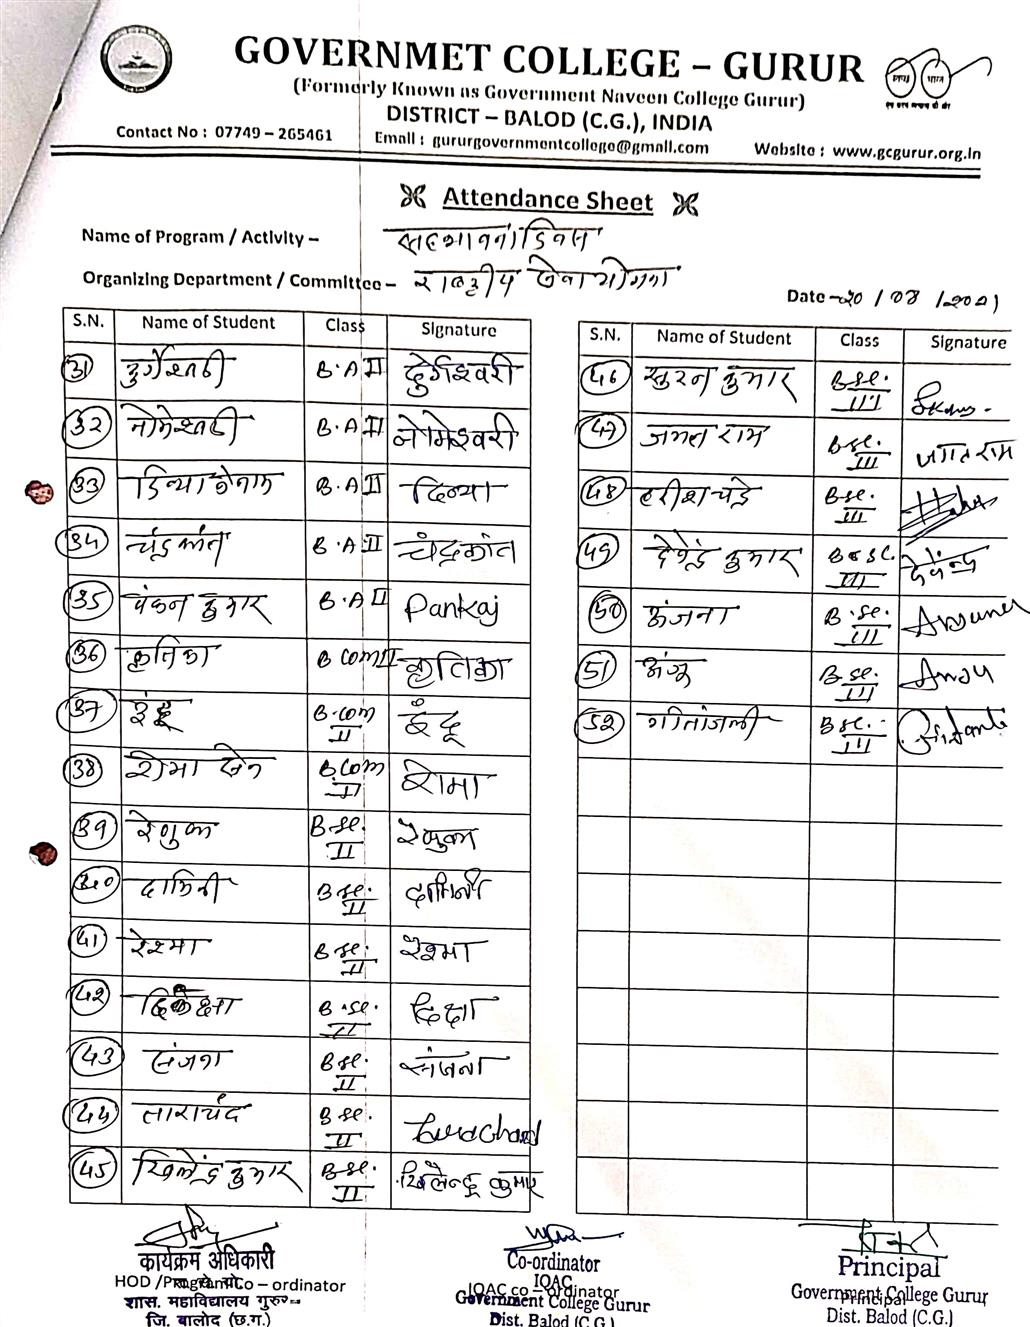 GOVERNMET COLLEGE – GURUR
(Formerly Known as Government Naveen College Gurur)
DISTRICT – BALOD (C.G.), INDIA
Contact No : 07749 – 265461 Email : gururgovernmentcollege@gmail.com Website : www.gcgurur.org.in
Attendance Sheet
Name of Program / Activity – सद्भावना दिवस
Organizing Department / Committee – राष्ट्रीय सेवा योजना
Date – 20 / 08 / 2021
S.N. Name of Student Class Signature
31 दुर्गेश्वरी B.A II दुर्गेश्वरी
32 नोमेश्वरी B.A II नोमेश्वरी
33 दिव्या B.A II दिव्या
34 चंद्रकांत B.A II चंद्रकांत
35 पंकज कुमार B.A II Pankaj
36 कृतिका B COM II कृतिका
37 इंदू B.COM II इंदू
38 शेमा सेन B.COM II शेमा
39 रेणुका B.Sc. II रेणुका
40 दामिनी B.Sc. II दामिनी
41 रेश्मा B.Sc. II रेश्मा
42 B.Sc. II दिक्षा
43 संजना B.Sc. II संजना
44 ताराचंद B.Sc. II Tarachand
45 खिलेन्द्र कुमार B.Sc. II खिलेन्द्र कुमार
S.N. Name of Student Class Signature
46 सुरज कुमार B.Sc. III
47 जगत राम B.Sc. III जगत राम
48 हरीश चंद्रे B.Sc. III
49 देवेंद्र कुमार B.Sc. III देवेन्द्र
50 अंजना B.Sc. III
51 अंजू B.Sc. III Anju
52 गीतांजली B.Sc. III
कार्यक्रम अधिकारी
HOD /Program Co – ordinator
रा. से. यो.
शास. महाविद्यालय गुरुर
जि. बालोद (छ.ग.)
Co-ordinator
IQAC
IQAC co – ordinator
Government College Gurur
Dist. Balod (C.G.)
Principal
Government College Gurur
Principal
Dist. Balod (C.G.)